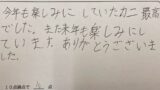 今年も楽しみにしていたカニ最高
でした。また来年も楽しみにし
ています。ありがとうございま
した。
10点満点で 点